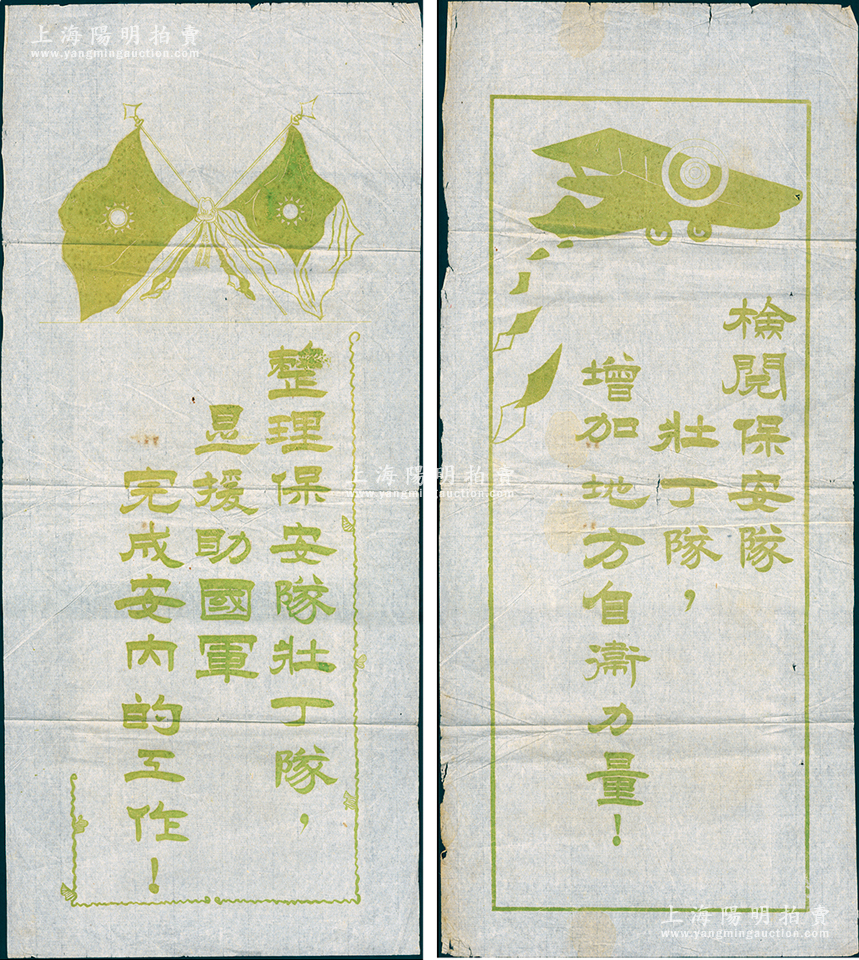 上海陽明拍賣
www.yangmingauction.com
整理保安隊壯丁隊，
是援助國軍
完成安内的工作！
檢閱保安隊
壯丁隊，
增加地方自衞力量！
上海陽明拍賣
www.yangmingauction.com
上海陽明拍賣
www.yangmingauction.com